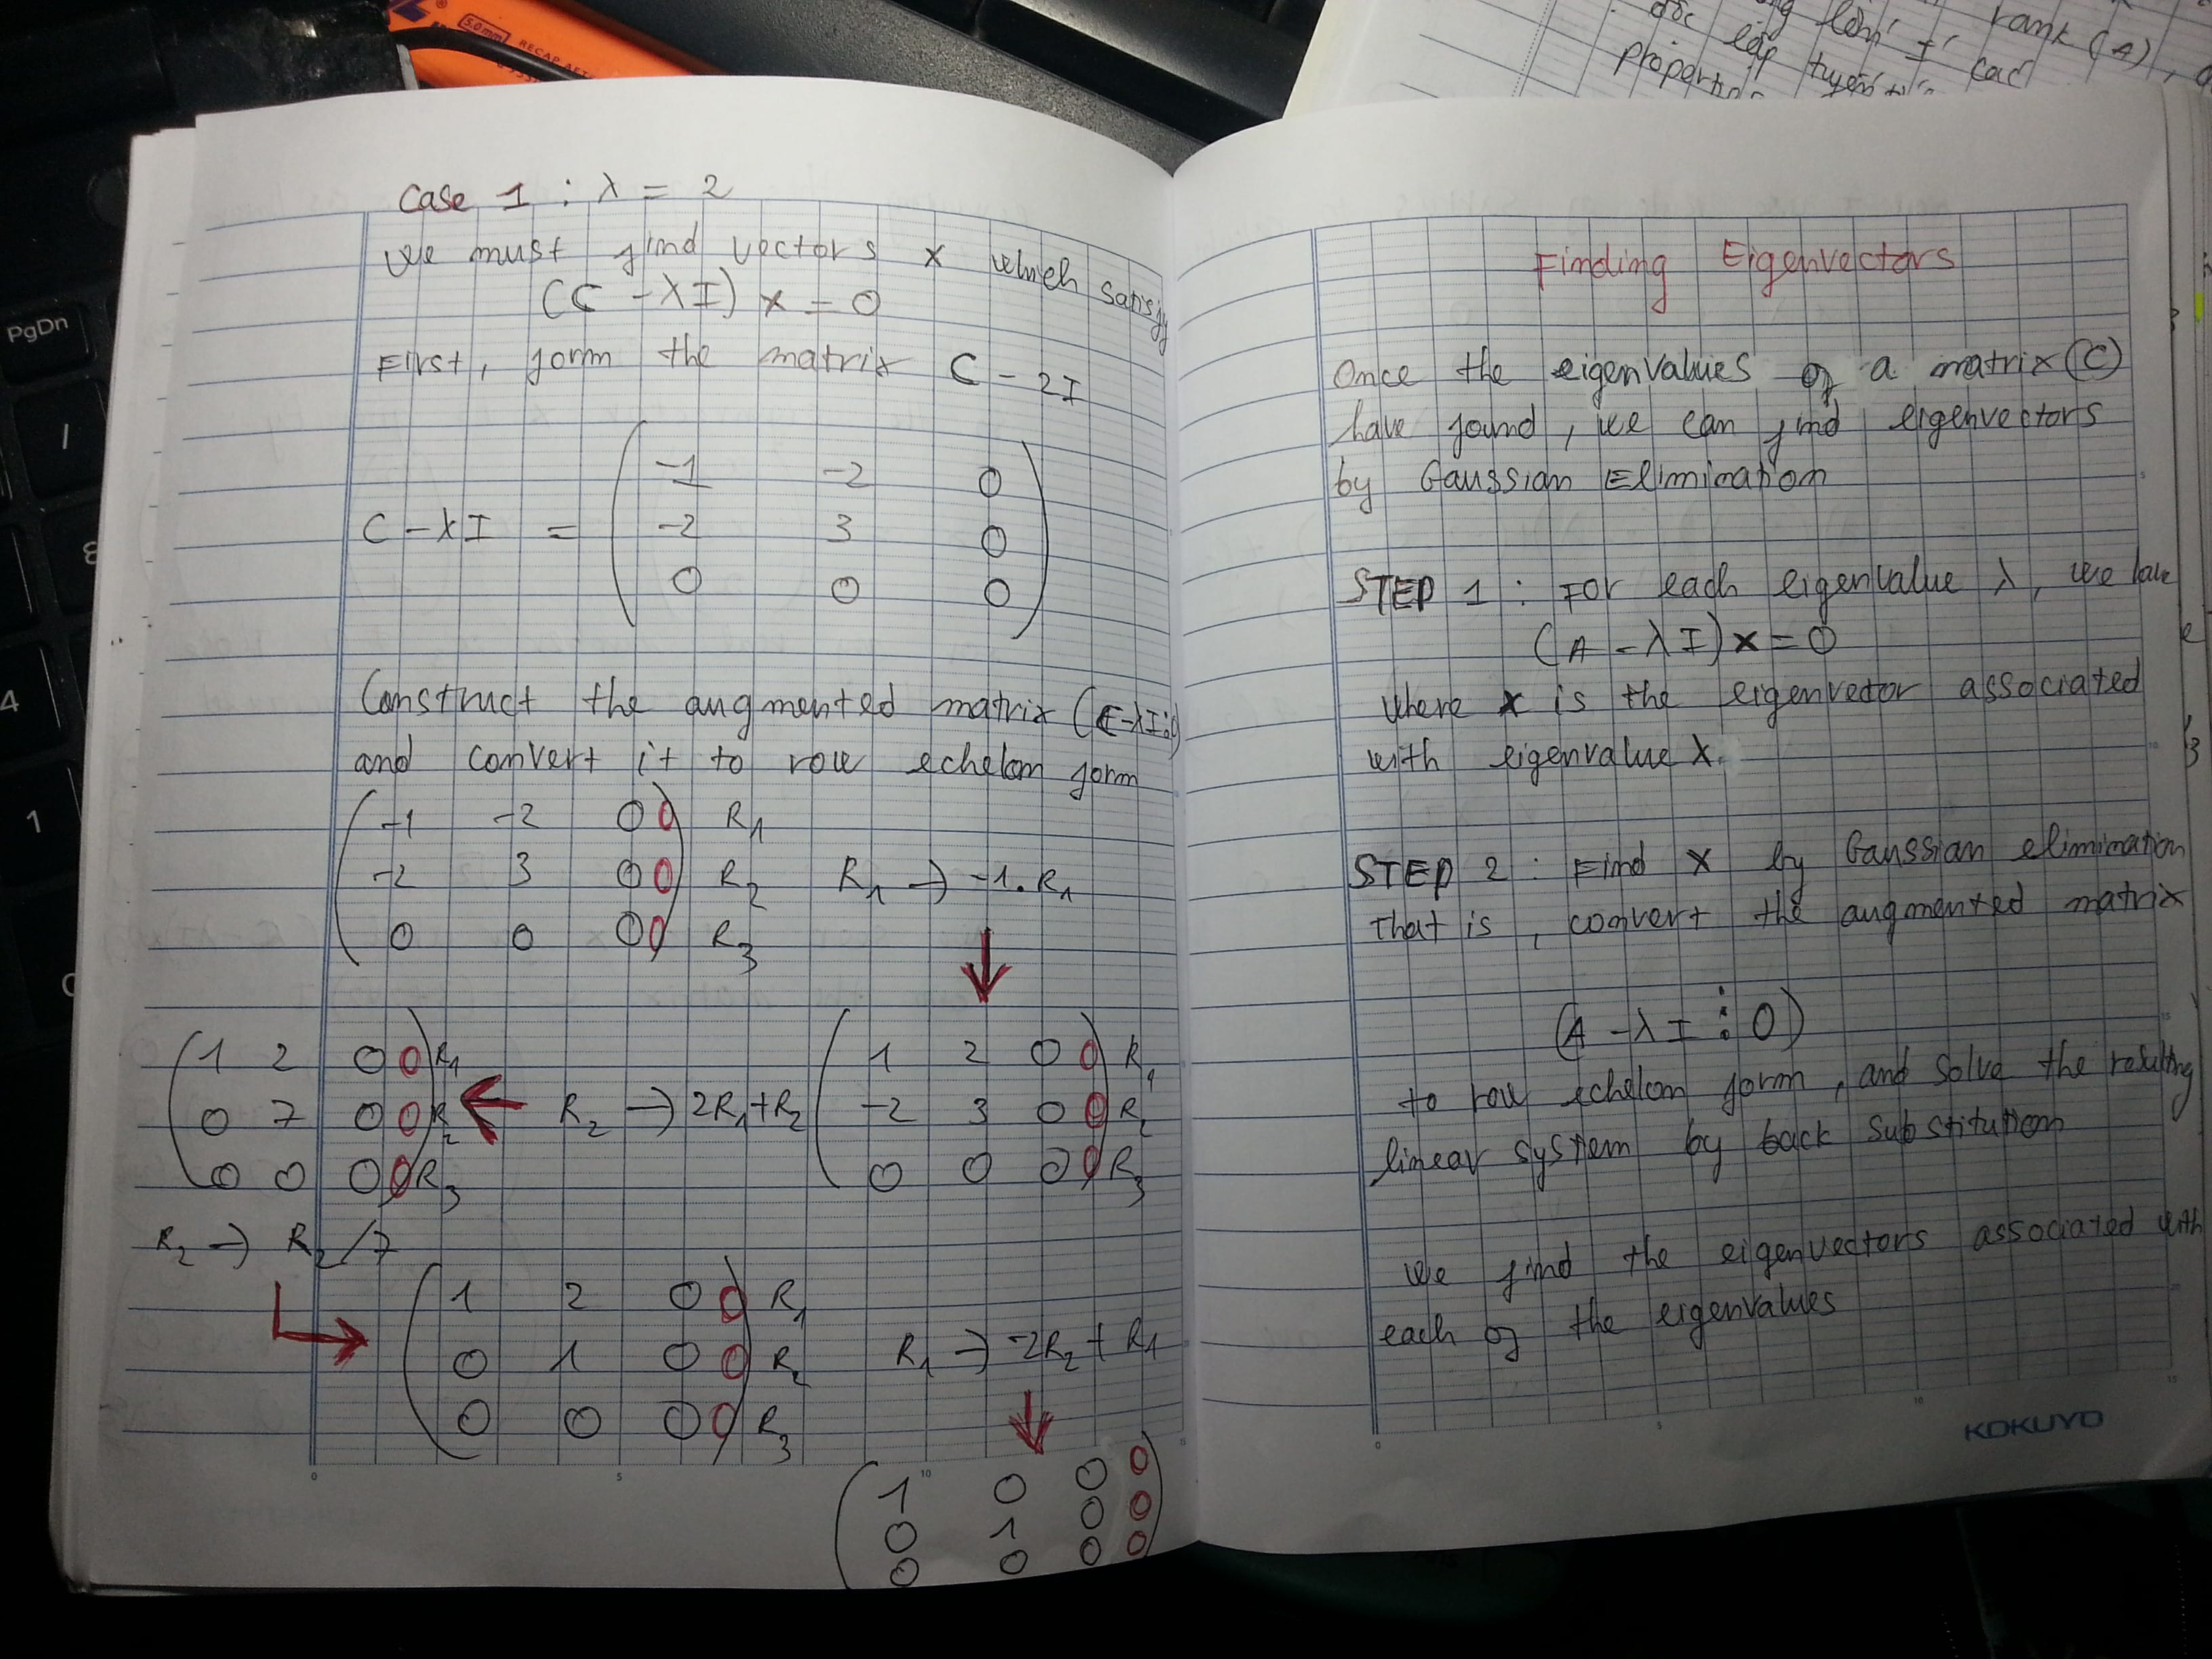 5.0mm
PgDn
/
8
4
1
Case 1 : λ = 2
We must find vectors x which satisfy
(C - λI) x = 0
First, form the matrix C - 2I
C - λI = ( -1 -2 0
-2 3 0
0 0 0 )
Construct the augmented matrix (C-λI⋮0)
and convert it to row echelon form
( -1 -2 0 0 ) R1
-2 3 0 0 R2 R1 → -1.R1
0 0 0 0 R3
( 1 2 0 0 ) R1
-2 3 0 0 R2
0 0 0 0 R3
R2 → 2R1+R2
( 1 2 0 0 ) R1
0 7 0 0 R2
0 0 0 0 R3
R2 → R2/7
( 1 2 0 0 ) R1
0 1 0 0 R2 R1 → -2R2 + R1
0 0 0 0 R3
( 1 0 0 0 )
0 1 0 0
0 0 0 0
Finding Eigenvectors
Once the eigenvalues of a matrix (C)
have found, we can find eigenvectors
by Gaussian Elimination
STEP 1 : For each eigenvalue λ, we have
(A - λI)x = 0
where x is the eigenvector associated
with eigenvalue λ.
STEP 2 : Find x by Gaussian elimination
That is, convert the augmented matrix
(A - λI ⋮ 0)
to row echelon form, and solve the resulting
linear system by back substitution
We find the eigenvectors associated with
each of the eigenvalues
KOKUYO
rank (A),
độc lập tuyến